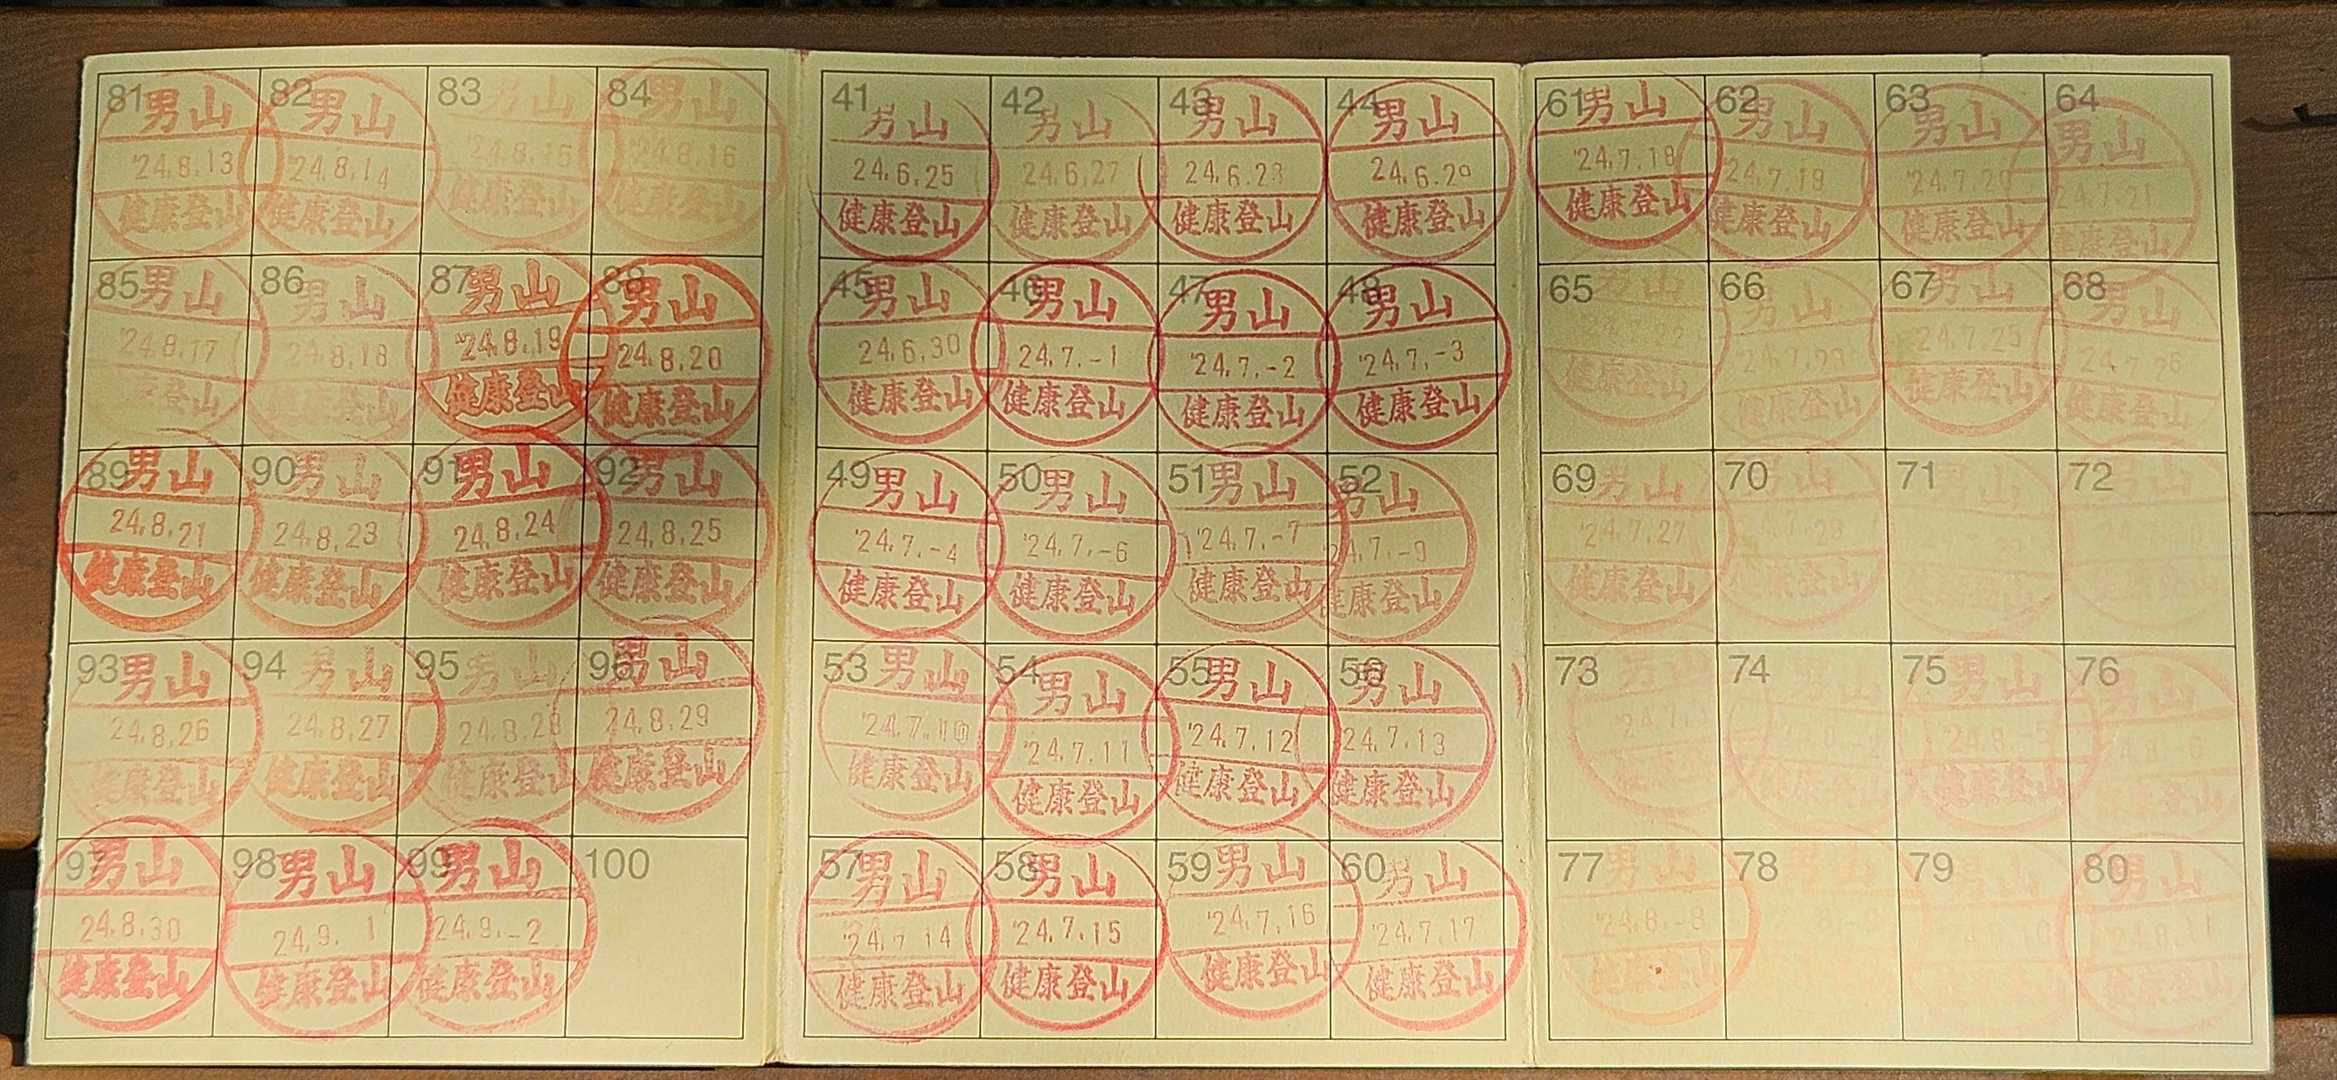 81
男山
'24.8.13
健康登山
82
男山
'24.8.14
健康登山
83
男山
24.8.15
健康登山
84
男山
24.8.16
健康登山
85
男山
'24.8.17
健康登山
86
男山
24.8.18
健康登山
87
男山
'24.8.19
健康登山
88
男山
24.8.20
健康登山
89
男山
24.8.21
健康登山
90
男山
24.8.23
健康登山
91
男山
24.8.24
健康登山
92
男山
24.8.25
健康登山
93
男山
24.8.26
健康登山
94
男山
24.8.27
健康登山
95
男山
24.8.28
健康登山
96
男山
24.8.29
健康登山
97
男山
24.8.30
健康登山
98
男山
24.9. 1
健康登山
99
男山
24.9.-2
健康登山
100
41
男山
24.6.25
健康登山
42
男山
24.6.27
健康登山
43
男山
健康登山
44
男山
24.6.29
健康登山
45
男山
24.6.30
健康登山
46
男山
'24.7.-1
健康登山
47
男山
'24.7.-2
健康登山
48
男山
'24.7.-3
健康登山
49
男山
'24.7.-4
健康登山
50
男山
'24.7.-6
健康登山
51
男山
'24.7.-7
健康登山
52
男山
24.7.-9
健康登山
53
男山
'24.7.10
健康登山
54
男山
'24.7.11
健康登山
55
男山
'24.7.12
健康登山
56
男山
24.7.13
健康登山
57
男山
'24.7.14
健康登山
58
男山
'24.7.15
健康登山
59
男山
'24.7.16
健康登山
60
男山
'24.7.17
健康登山
61
男山
'24.7.18
健康登山
62
男山
'24.7.19
健康登山
63
男山
'24.7.20
健康登山
64
男山
24.7.21
健康登山
65
男山
健康登山
66
男山
健康登山
67
男山
24.7.25
健康登山
68
男山
24.7.26
健康登山
69
男山
'24.7.27
健康登山
70
男山
健康登山
71
72
73
74
75
男山
健康登山
76
男山
77
男山
健康登山
78
79
80
男山
24.8.11
健康登山